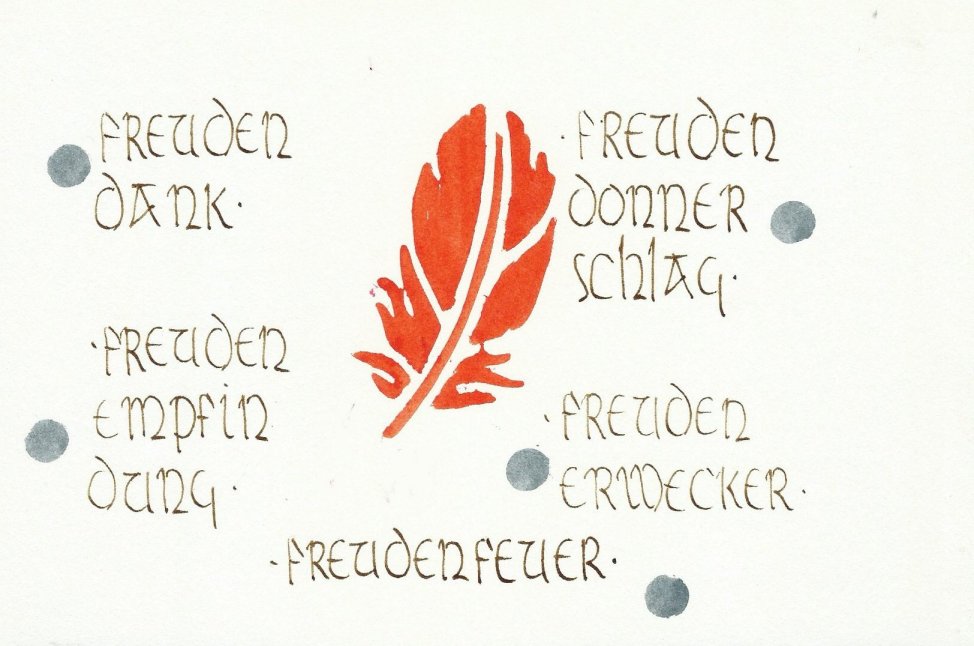 FREUDEN
DANK·
·FREUDEN
DONNER
SCHLAG·
·FREUDEN
EMPFIN
DUNG·
·FREUDEN
ERWECKER·
·FREUDENFEUER·